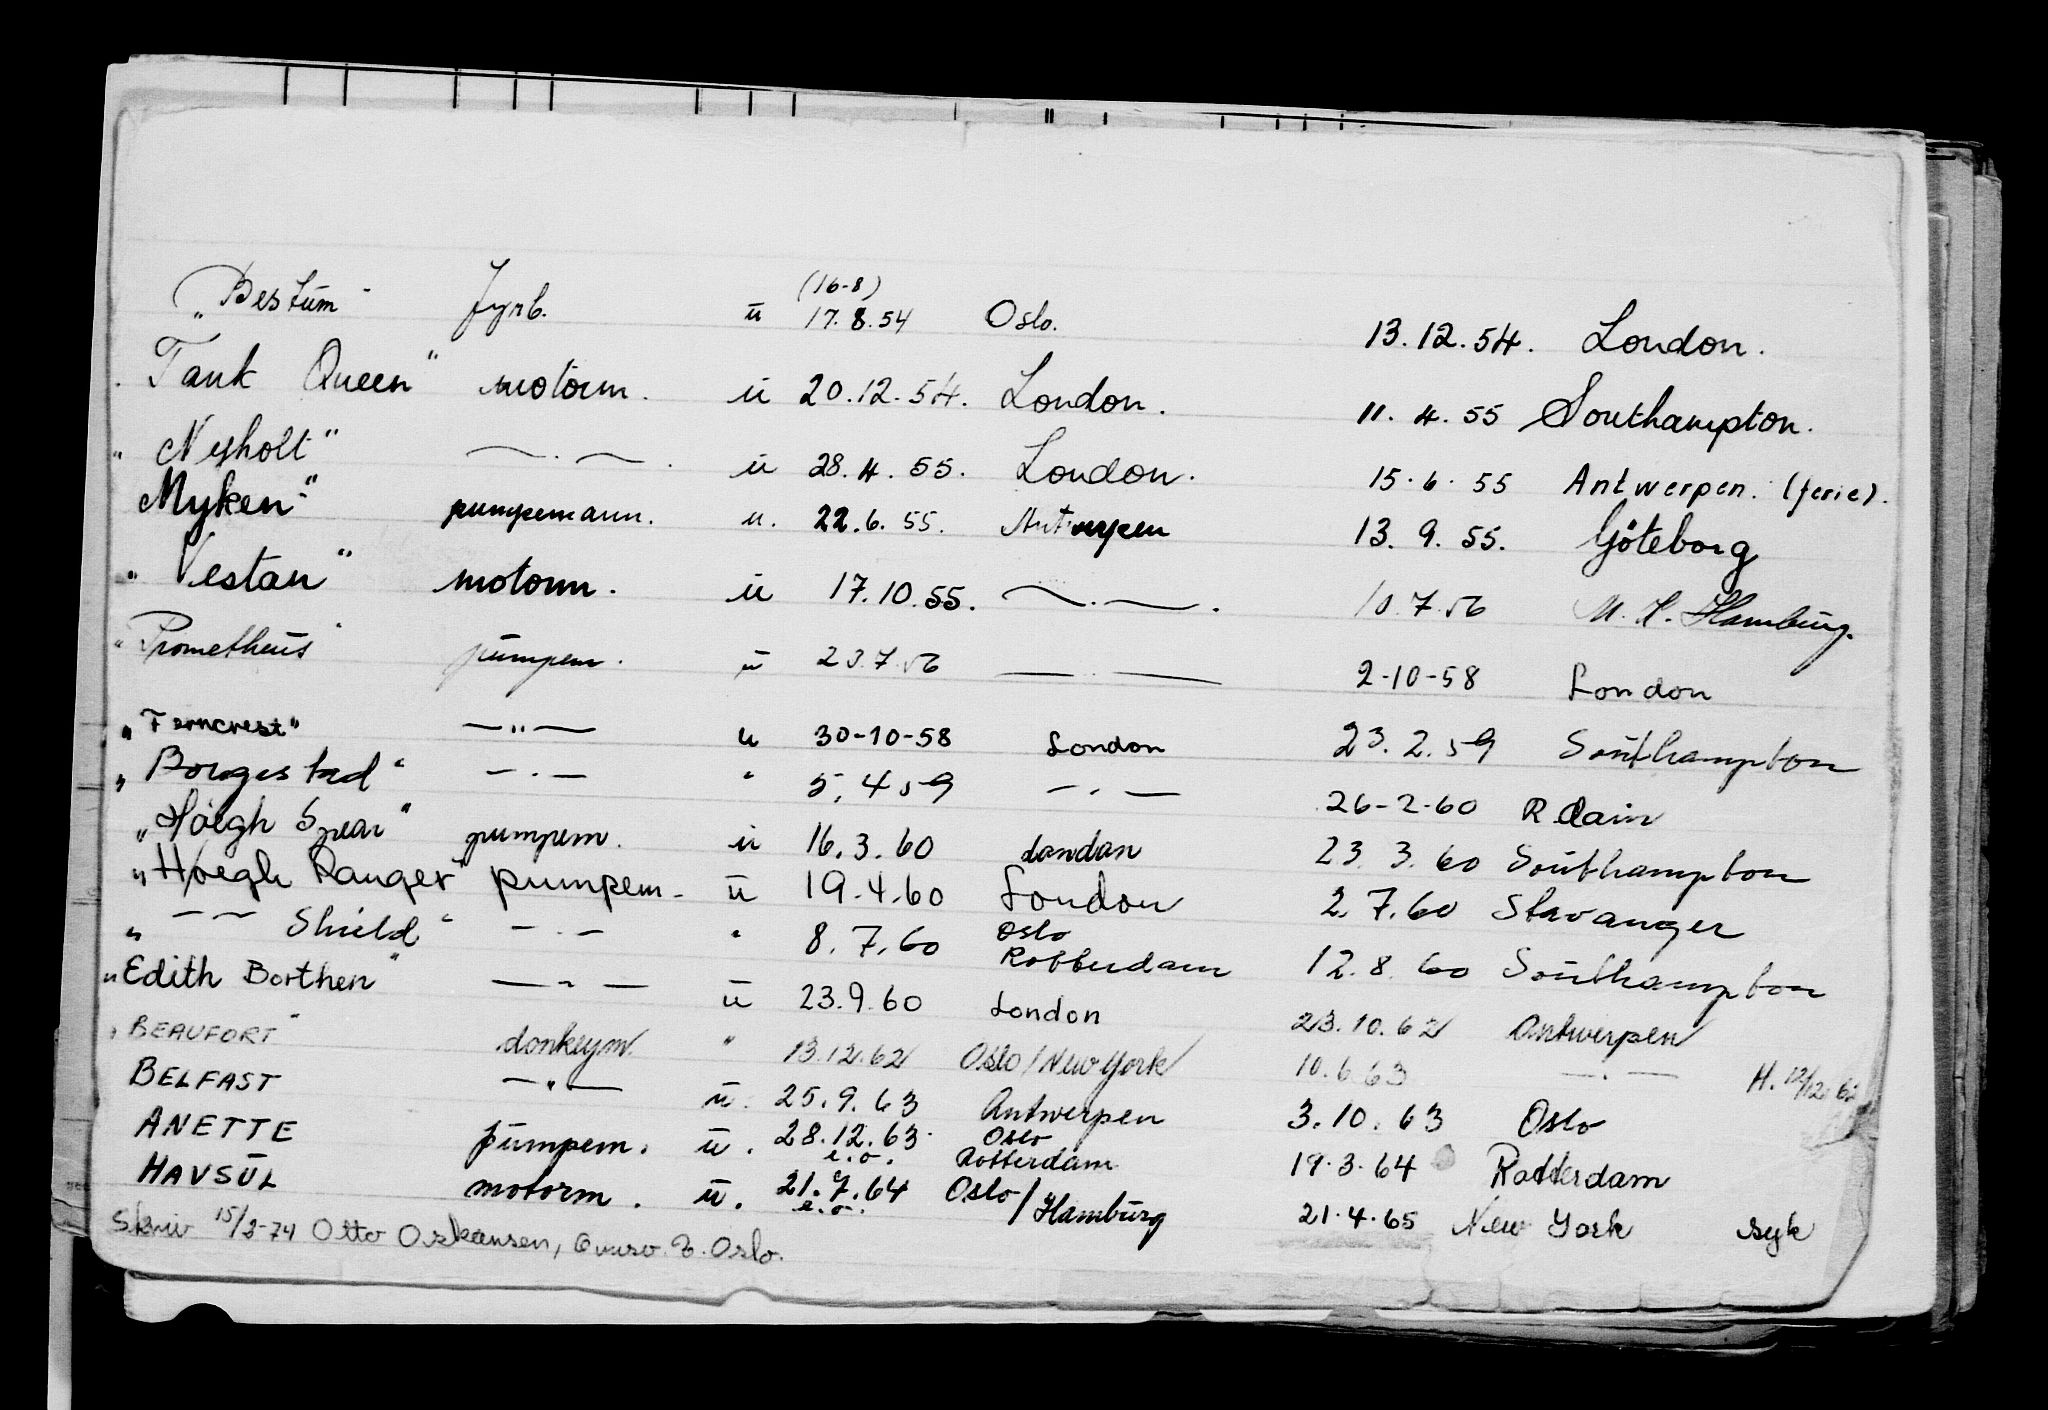 (16-8)
„Bestum" fyrb. u 17.8.54 Oslo. 13.12.54. London.
„Tank Queen" motorm. u 20.12.54. London. 11.4.55 Southampton.
„Nyholt" —.—. u 28.4.55. London. 15.6.55 Antwerpen. (ferie).
Myken" pumpemann. u. 22.6.55. Antwerpen 13.9.55. Göteborg
„Vestan" motorm. u 17.10.55. —.—. 10.7.56 Hamburg.
„Prometheus" pumpem. u 23.7.56 —.— 2-10-58 London
„Ferncrest" —„— u 30-10-58 London 23.2.59 Southampton
„Borgestad" —.— " 5.4.59 —.— 26-2-60 R.dam
„Höegh Spear" pumpem. u 16.3.60 London 23.3.60 Southampton
„Höegh Ranger" pumpem. u 19.4.60 London 2.7.60 Stavanger
„—— Shield" —.— " 8.7.60 Oslo Rotterdam 12.8.60 Southampton
„Edith Borthen" —"— u 23.9.60 London 23.10.62 Antwerpen
„BEAUFORT" donkeym. " 13.12.62 Oslo/New York 10.6.63 —.— H. 12/12.62
BELFAST —"— u. 25.9.63 Antwerpen 3.10.63 Oslo
ANETTE pumpem. u. 28.12.63. e.o. Oslo Rotterdam 19.3.64 Rotterdam
HAVSUL motorm. u. 21.7.64 e.o. Oslo/Hamburg 21.4.65 New York syk
Skriv 15/2-74 Otto Oskansen, Oslo.